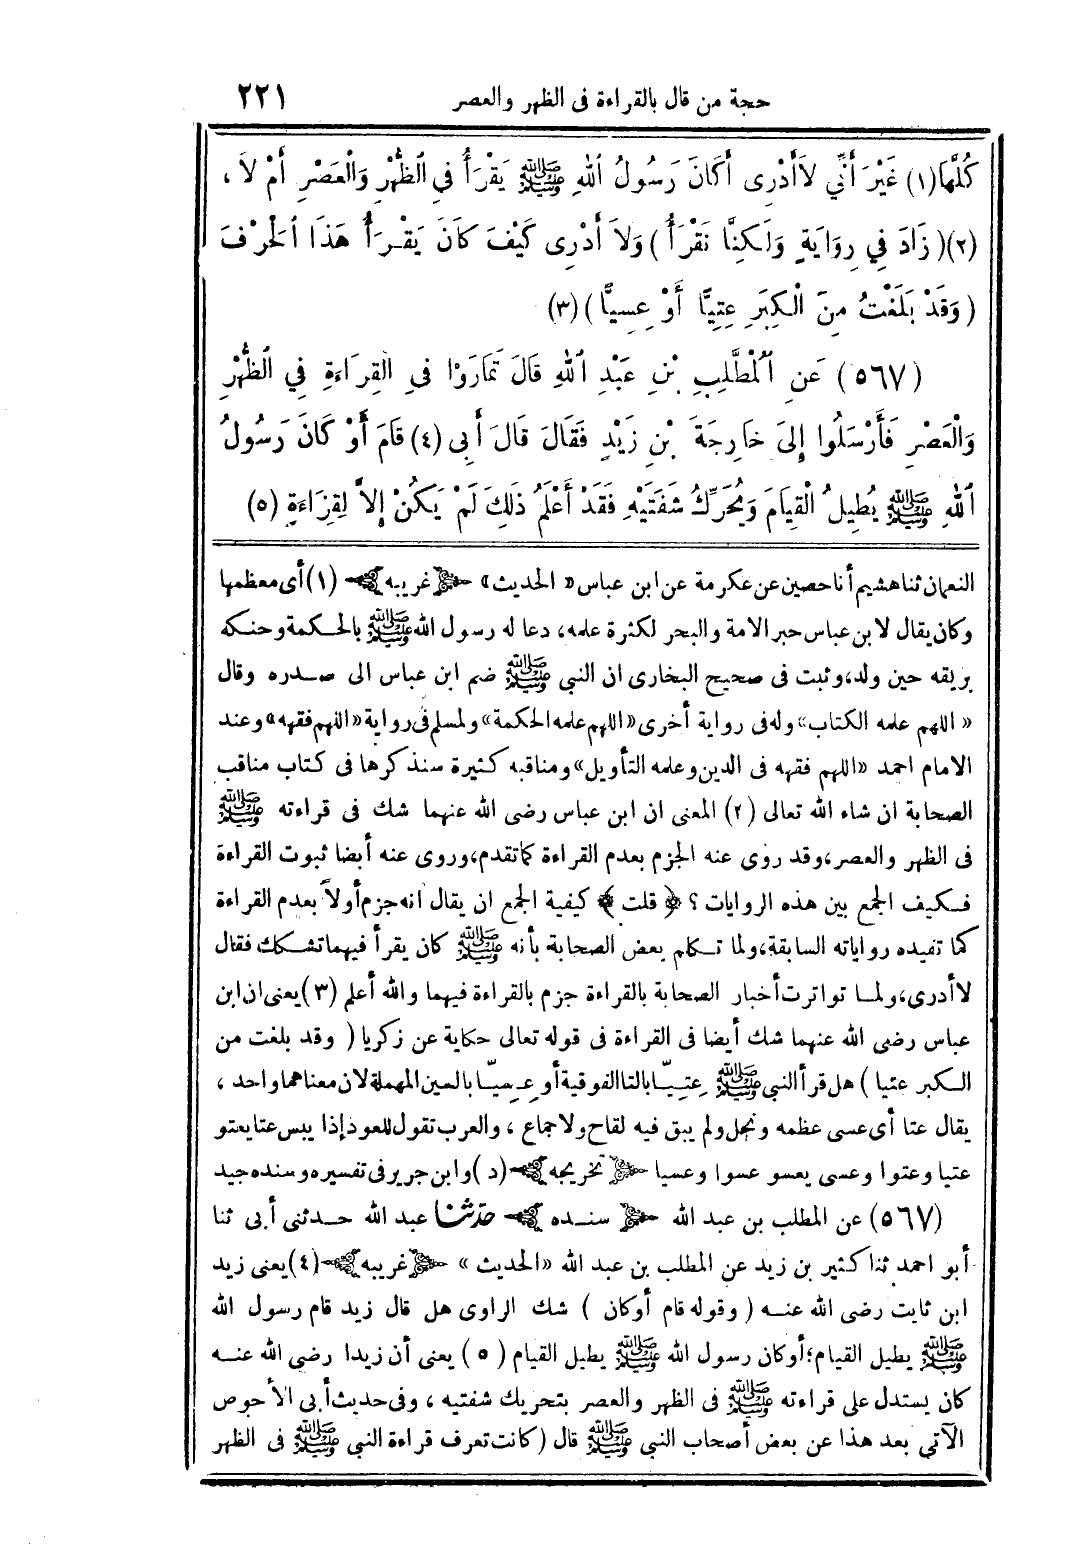 حجة من قال بالقراءة فى الظهر والعصر ٢٢١
كُلَّهَا(١) غَيْرَ أَنِّي لاَأَدْرِى أَكَانَ رَسُولُ اللهِ ﷺ يَقْرَأُ فِي الظُّهْرِ وَالْعَصْرِ أَمْ لاَ،
(٢)(زَادَ فِي رِوَايَةٍ وَلَكِنَّا نَقْرَأُ) وَلاَ أَدْرِى كَيْفَ كَانَ يَقْرَأُ هَذَا الْحَرْفَ
(وَقَدْ بَلَغْتُ مِنَ الْكِبَرِ عِتِيًّا أَوْ عِسِيًّا) (٣)
(٥٦٧) عَنِ الْمُطَّلِبِ بْنِ عَبْدِ اللهِ قَالَ تَمَارَوْا فِى الْقِرَاءَةِ فِي الظُّهْرِ
وَالْعَصْرِ فَأَرْسَلُوا إِلَى خَارِجَةَ بْنِ زَيْدٍ فَقَالَ قَالَ أَبِى (٤) قَامَ أَوْ كَانَ رَسُولُ
اللهِ ﷺ يُطِيلُ الْقِيَامَ وَيُحَرِّكُ شَفَتَيْهِ فَقَدْ أَعْلَمُ ذَلِكَ لَمْ يَكُنْ إِلاَّ لِقِرَاءَةٍ (٥)
النعمان ثنا هشيم أنا حصين عن عكرمة عن ابن عباس «الحديث» ﴿غريبه﴾ (١) أى معظمها
وكان يقال لابن عباس حبر الامة والبحر لكثرة علمه، دعا له رسول الله ﷺ بالحكمة وحنكه
بريقه حين ولد، وثبت فى صحيح البخارى ان النبي ﷺ ضم ابن عباس الى صدره وقال
«اللهم علمه الكتاب» وله فى رواية أخرى «اللهم علمه الحكمة» ولمسلم فى رواية «اللهم فقهه» وعند
الامام احمد «اللهم فقهه فى الدين وعلمه التأويل» ومناقبه كثيرة سنذكرها فى كتاب مناقب
الصحابة ان شاء الله تعالى (٢) المعنى ان ابن عباس رضى الله عنهما شك فى قراءته ﷺ
فى الظهر والعصر، وقد روى عنه الجزم بعدم القراءة كما تقدم، وروى عنه أيضا ثبوت القراءة
فكيف الجمع بين هذه الروايات؟ ﴿قلت﴾ كيفية الجمع ان يقال انه جزم أولاً بعدم القراءة
كما تفيده رواياته السابقة، ولما تكلم بعض الصحابة بأنه ﷺ كان يقرأ فيهما تشكك فقال
لا أدرى، ولما تواترت أخبار الصحابة بالقراءة جزم بالقراءة فيهما والله أعلم (٣) يعنى ان ابن
عباس رضى الله عنهما شك أيضا فى القراءة فى قوله تعالى حكاية عن زكريا (وقد بلغت من
الكبر عتيا) هل قرأ النبي ﷺ عِتِيّا بالتا الفوقية أو عِسِيّا بالسين المهملة لان معناهما واحد،
يقال عتا أى عسى عظمه ونحل ولم يبق فيه لقاح ولا جماع، والعرب تقول للعود إذا يبس عتا يعتو
عتيا وعتوا وعسى يعسو عسوا وعسيا ﴿تخريجه﴾ (د) وابن جرير فى تفسيره وسنده جيد
(٥٦٧) عن المطلب بن عبد الله ﴿سنده﴾ حدثنا عبد الله حدثنى أبى ثنا
أبو احمد ثنا كثير بن زيد عن المطلب بن عبد الله «الحديث» ﴿غريبه﴾ (٤) يعنى زيد
ابن ثابت رضى الله عنه (وقوله قام أوكان) شك الراوى هل قال زيد قام رسول الله
ﷺ يطيل القيام؛ أوكان رسول الله ﷺ يطيل القيام (٥) يعنى أن زيدا رضى الله عنه
كان يستدل على قراءته ﷺ فى الظهر والعصر بتحريك شفتيه، وفى حديث أبى الأحوص
الآتي بعد هذا عن بعض أصحاب النبي ﷺ قال (كانت تعرف قراءة النبي ﷺ فى الظهر